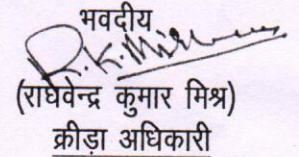 भवदीय
R.K. Mishra
(राघवेन्द्र कुमार मिश्र)
क्रीड़ा अधिकारी